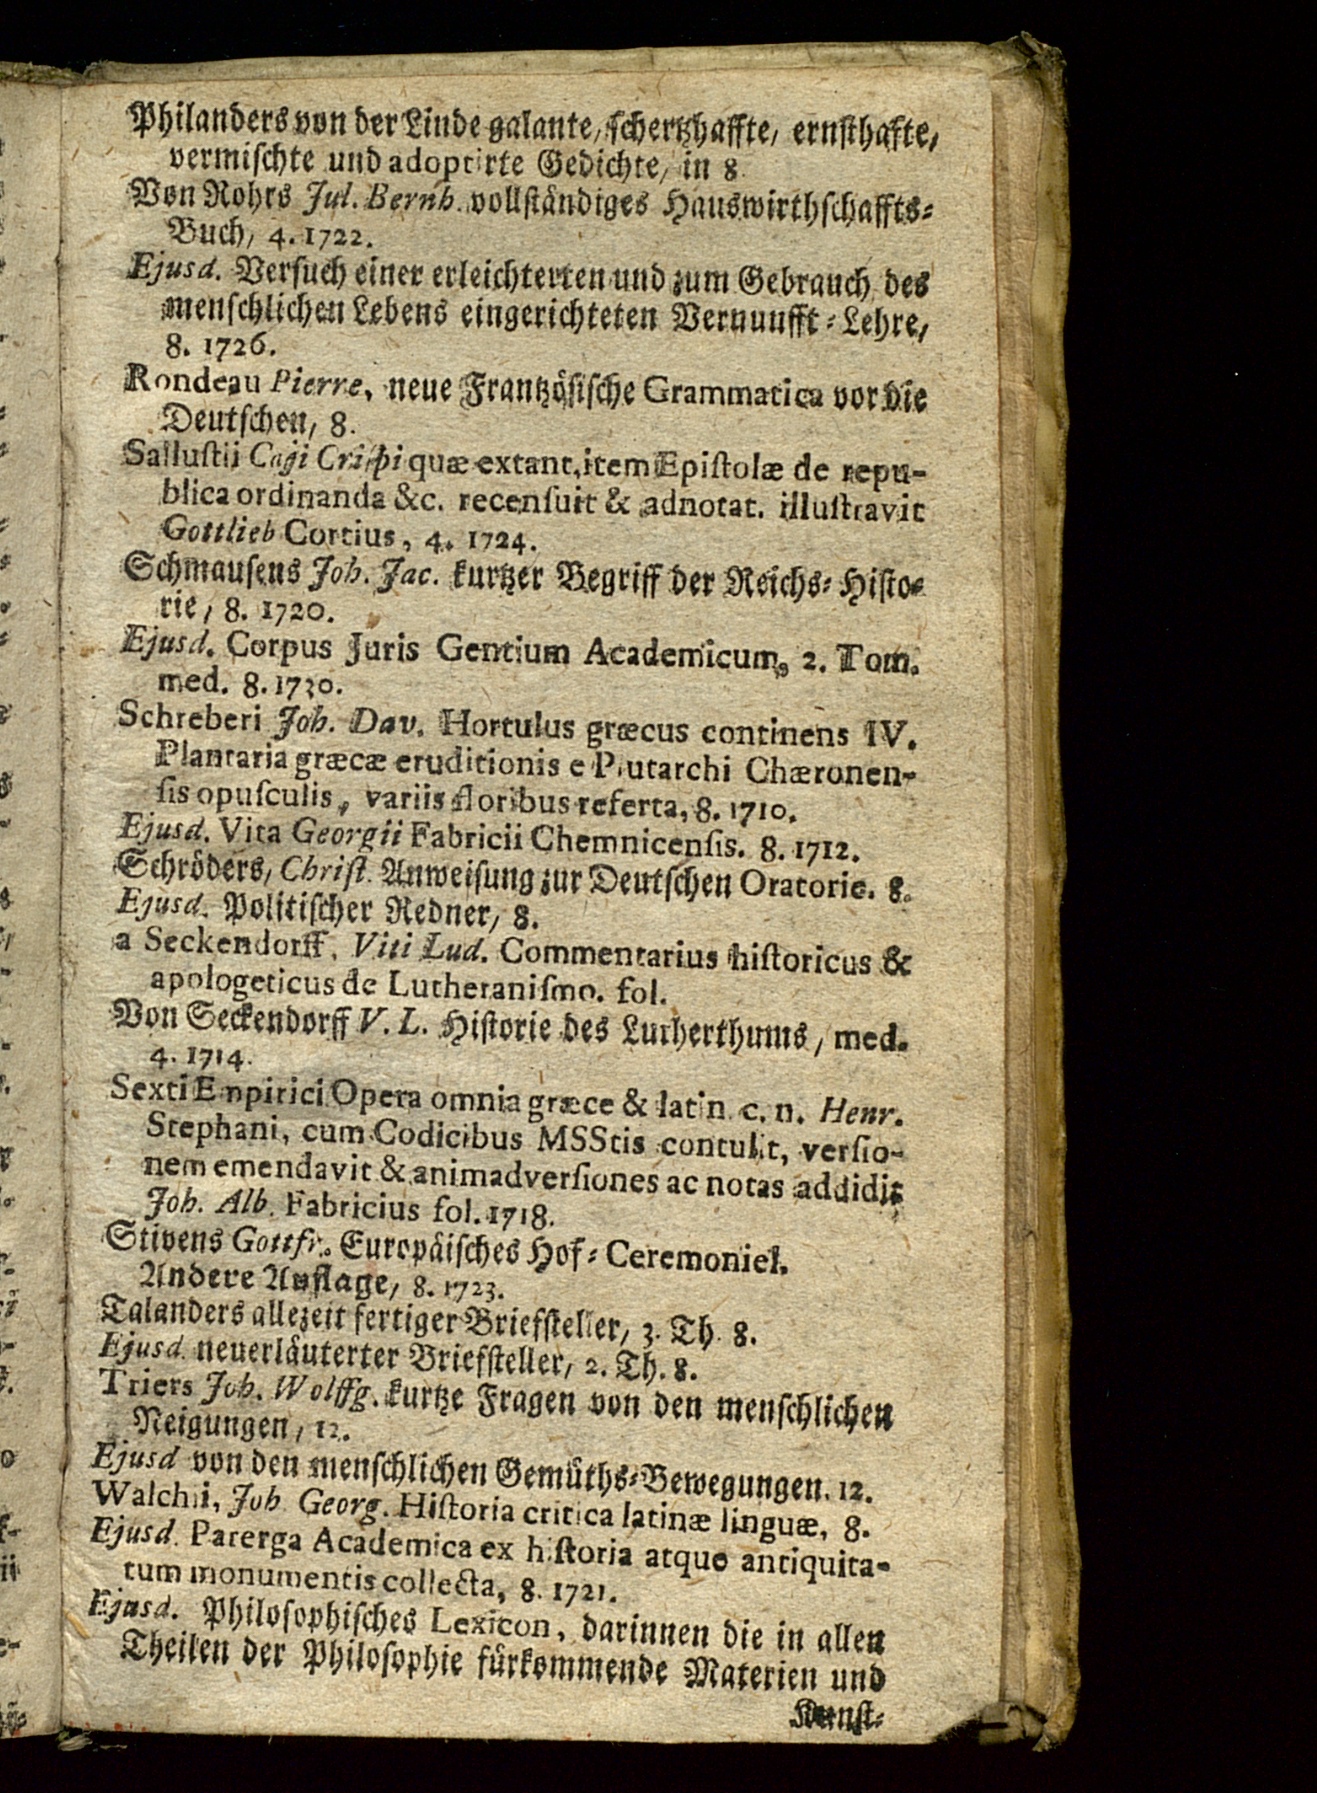 Philanders von der Linde galante, schertzhaffte, ernsthafte,
vermischte und adoptirte Gedichte, in 8
Von Rohrs Jul. Bernh. vollständiges Hauswirthschaffts-
Buch, 4. 1722.
Ejusd. Versuch einer erleichterten und zum Gebrauch des
menschlichen Lebens eingerichteten Vernunfft-Lehre,
8. 1726.
Rondeau Pierre, neue Frantzösische Grammatica vor die
Deutschen, 8.
Sallustii Caji Crispi quæ extant, item Epistolæ de repu-
blica ordinanda &c. recensuit & adnotat. illustravit
Gottlieb Cortius, 4. 1724.
Schmausens Joh. Jac. kurtzer Begriff der Reichs-Histo-
rie, 8. 1720.
Ejusd. Corpus Juris Gentium Academicum, 2. Tom.
med. 8. 1730.
Schreberi Joh. Dav. Hortulus græcus continens IV.
Plantaria græcæ eruditionis e Plutarchi Chæronen-
sis opusculis, variis floribus referta, 8. 1710.
Ejusd. Vita Georgii Fabricii Chemnicensis. 8. 1712.
Schröders, Christ. Anweisung zur Deutschen Oratorie. 8.
Ejusd. Politischer Redner, 8.
a Seckendorff, Viti Lud. Commentarius historicus &
apologeticus de Lutheranismo. fol.
Von Seckendorff V. L. Historie des Lutherthums, med.
4. 1714.
Sexti Empirici Opera omnia græce & latin. c. n. Henr.
Stephani, cum Codicibus MSStis contulit, versio-
nem emendavit & animadversiones ac notas addidit
Joh. Alb. Fabricius fol. 1718.
Stivens Gottfr. Europäisches Hof-Ceremoniel.
Andere Auflage, 8. 1723.
Talanders allezeit fertiger Briefsteller, 3. Th. 8.
Ejusd. neuerläuterter Briefsteller, 2. Th. 8.
Triers Joh. Wolffg. kurtze Fragen von den menschlichen
Neigungen, 12.
Ejusd von den menschlichen Gemüths-Bewegungen. 12.
Walchii, Joh Georg. Historia critica latinæ linguæ, 8.
Ejusd. Parerga Academica ex historia atque antiquita-
tum monumentis collecta, 8. 1721.
Ejusd. Philosophisches Lexicon, darinnen die in allen
Theilen der Philosophie fürkommende Materien und
Kunst-